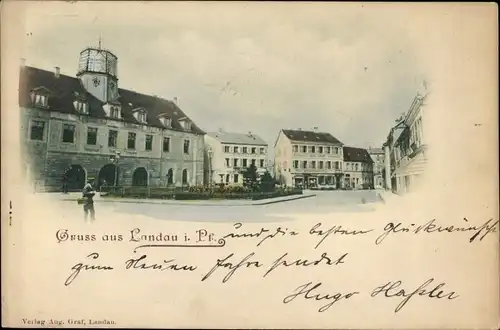 Gruss aus Landau i. Pf. und die besten Glückwünsche
zum Neuen Jahre sendet
Hugo Haßler
Verlag Aug. Graf, Landau.